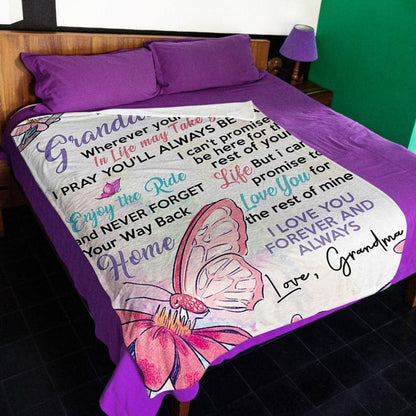 Wherever your
In Life may Take
I PRAY YOU'LL ALWAYS BE
Enjoy the Ride
and NEVER FORGET
Your Way Back
Home
I can't promise
be here for the
rest of your
Life But I can
promise to
Love You for
the rest of mine
I LOVE YOU
FOREVER AND
ALWAYS
Love, Grandma